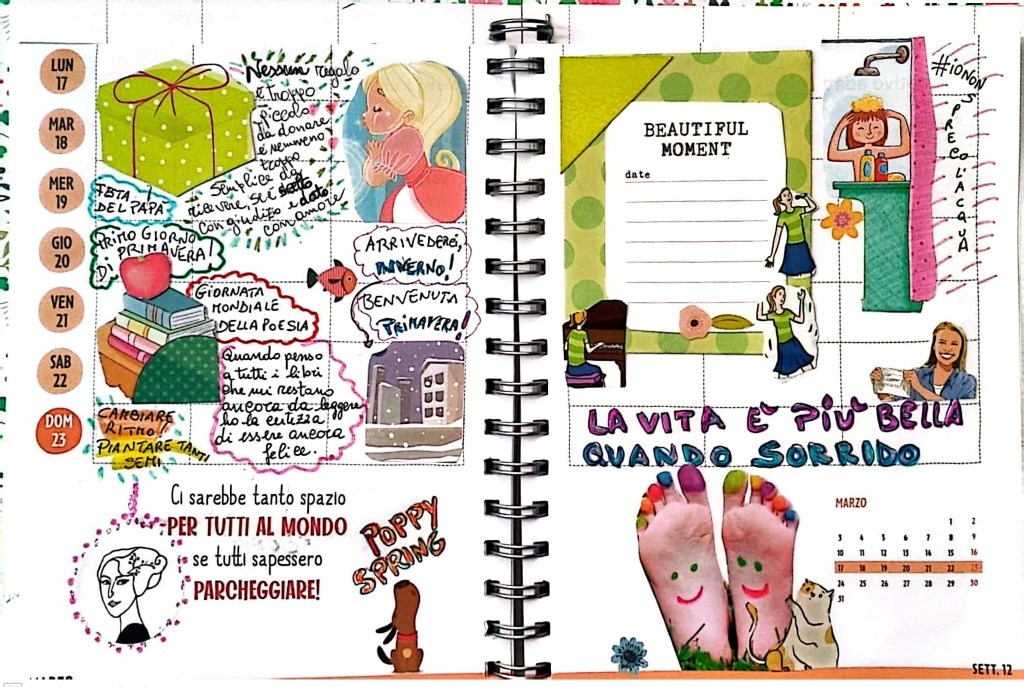 LUN
17
MAR
18
MER
19
GIO
20
VEN
21
SAB
22
DOM
23
Nessun regalo
è troppo
piccolo
da donare
e nemmeno
troppo
semplice da
ricevere, se è scelto
con giudizio e dato
con amore
FESTA
DEL PAPÀ
PRIMO GIORNO
DI PRIMAVERA!
ARRIVEDERCI,
INVERNO!
GIORNATA
MONDIALE
DELLA POESIA
BENVENUTA
PRIMAVERA!
Quando penso
a tutti i libri
che mi restano
ancora da leggere
ho la certezza
di essere ancora
felice.
CAMBIARE
RITMO!
PIANTARE TANTI
SEMI
Ci sarebbe tanto spazio
PER TUTTI AL MONDO
se tutti sapessero
PARCHEGGIARE!
POPPY
SPRING
BEAUTIFUL
MOMENT
date
#IONON
SPRECOL'ACQUA
LA VITA E' PIU' BELLA
QUANDO SORRIDO
MARZO
1 2
3 4 5 6 7 8 9
10 11 12 13 14 15 16
17 18 19 20 21 22 23
24 25 26 27 28 29 30
31
SETT. 12